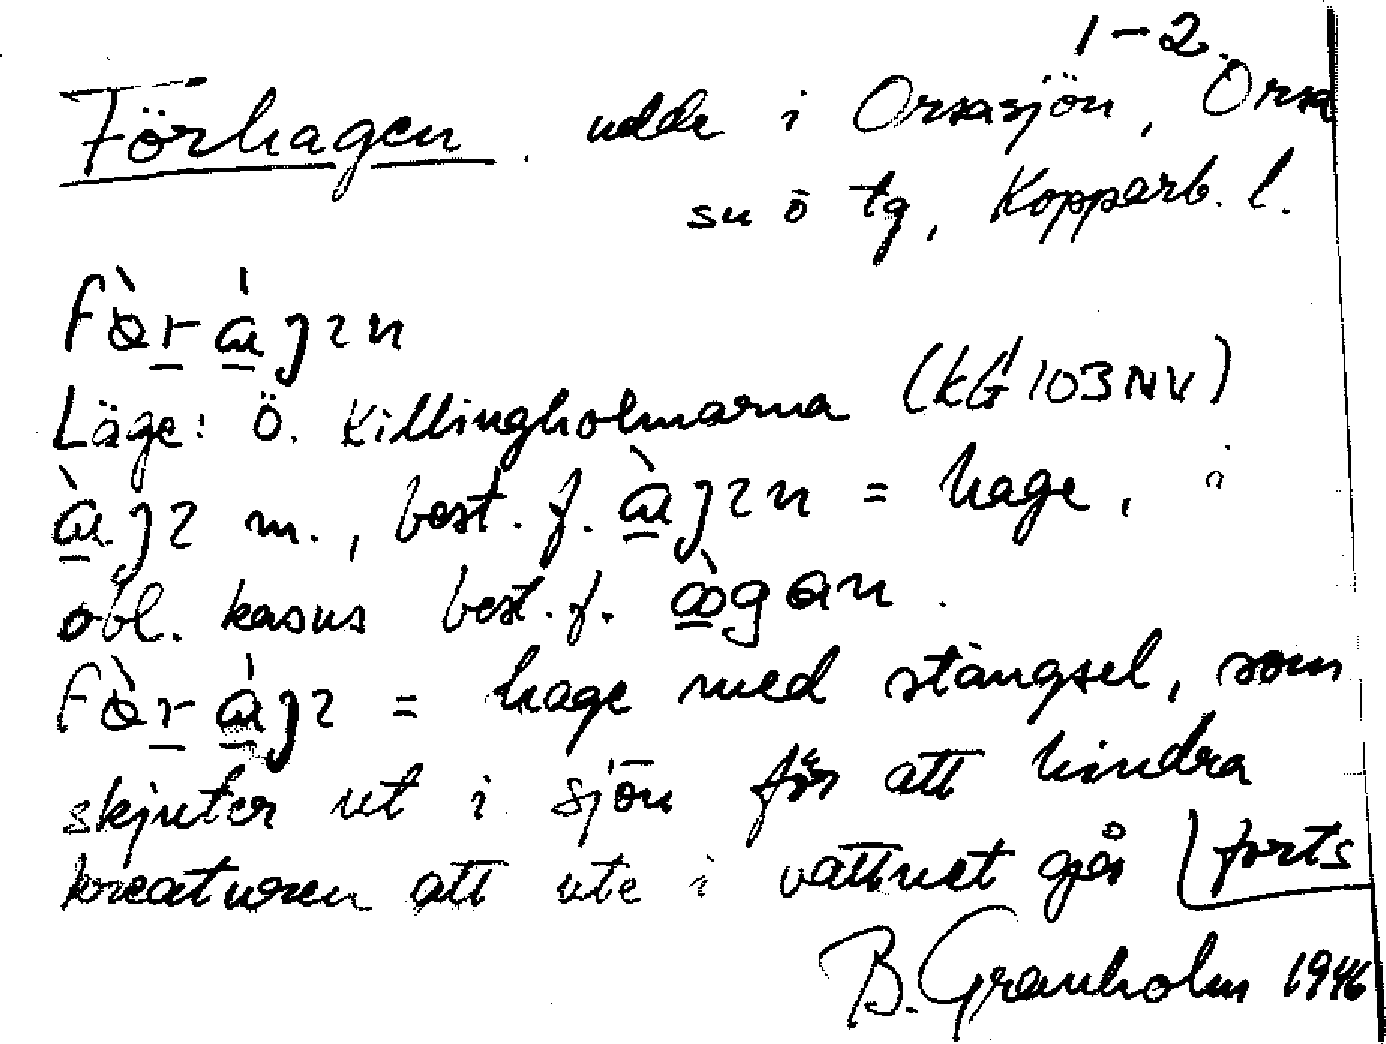 1-2.
Förhagen. udde i Orsasjön, Orsa
sn ö tg, Kopparb. l.
Läge: Ö. Killingholmarna (kG 103NV)
m., best. f. = hage, i
obl. kasus best. f.
= hage med stängsel, som
skjuter ut i sjön för att hindra
kreaturen att ute i vattnet gå forts
B. Granholm 1946